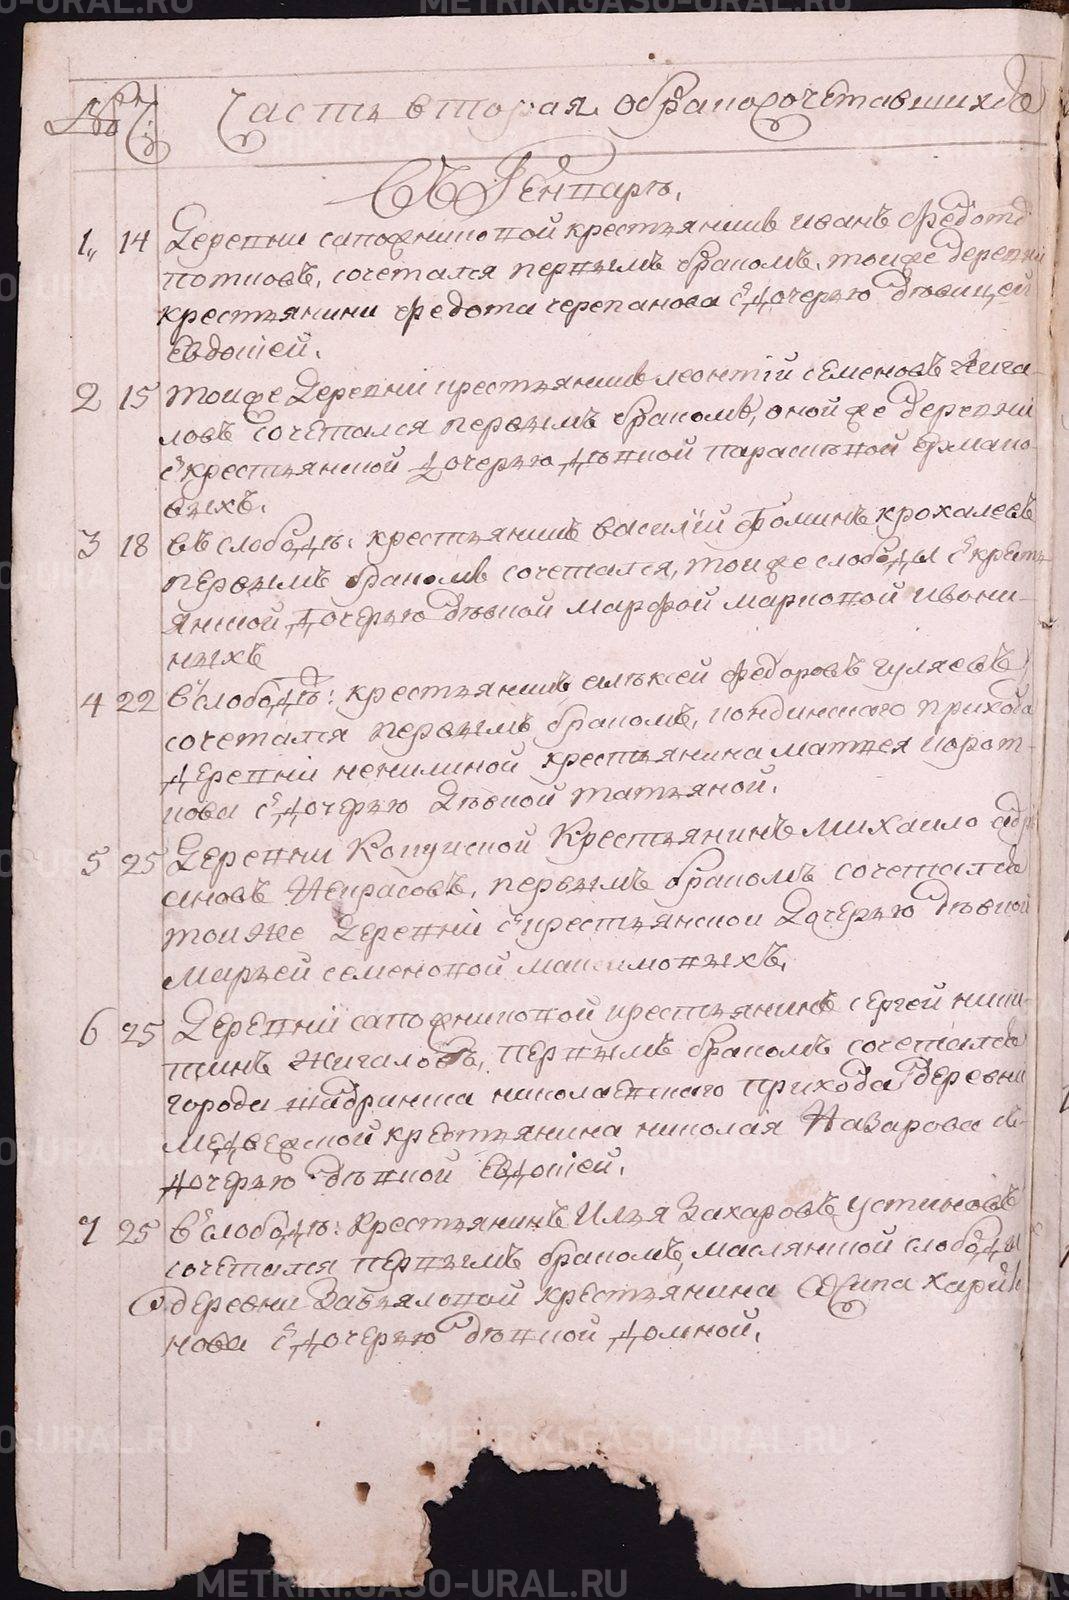 № Ч: Часть вторая обракосочетавшихся
Въ Генваръ.
1, 14 Деревни сапожниковой крестьянинъ иванъ Федотъ
потповъ, сочетался первымъ бракомъ, тоиже деревни
крестьянина Федота черепанова съ дочерью дѣвицей
Евдокіей.
2 15 тоиже Деревни крестьянинъ леонтій семеновъ Жига-
ловъ сочетался первымъ бракомъ, оной же деревни
скрестьянской дочерью дѣвкой параскъвой Ермако-
выхъ.
3 18 въ слободъ: крестьянинъ василій Фоминъ крохалевъ
первымъ бракомъ сочетался, тоиже слободы скресть-
янской дочерью дѣвкой марфой марковой ивони-
ныхъ
4 22 вслободъ: крестьянинъ алъксей федоровъ гуляевъ
сочетался первымъ бракомъ, кондинского прихода
деревни крестьянина матвея корот-
кова сдочерью Дѣвкой татьяной.
5 25 Деревни Крестьянинъ михаило андрі-
яновъ Некрасовъ, первымъ бракомъ сочетался
тоиже Деревни скрестьянскои Дочерью дѣвкой
марьей семеновой максимовыхъ.
6 25 Деревни сапожниковой крестьянинъ сергей ники-
тинъ жигаловъ, первымъ бракомъ сочетался
города шадринска николаевского прихода деревни
медвежской крестьянина николая Назарова съ-
дочерью дѣвкой Евдокіей.
7 25 вслободъ: Крестьянинъ Илья Захаровъ устиновъ
сочетался первымъ бракомъ, маслянской слободы
деревни Завьяловой крестьянина Осипа харин-
нова сдочерью дѣвкой домной.
METRIKI.GASO-URAL.RU